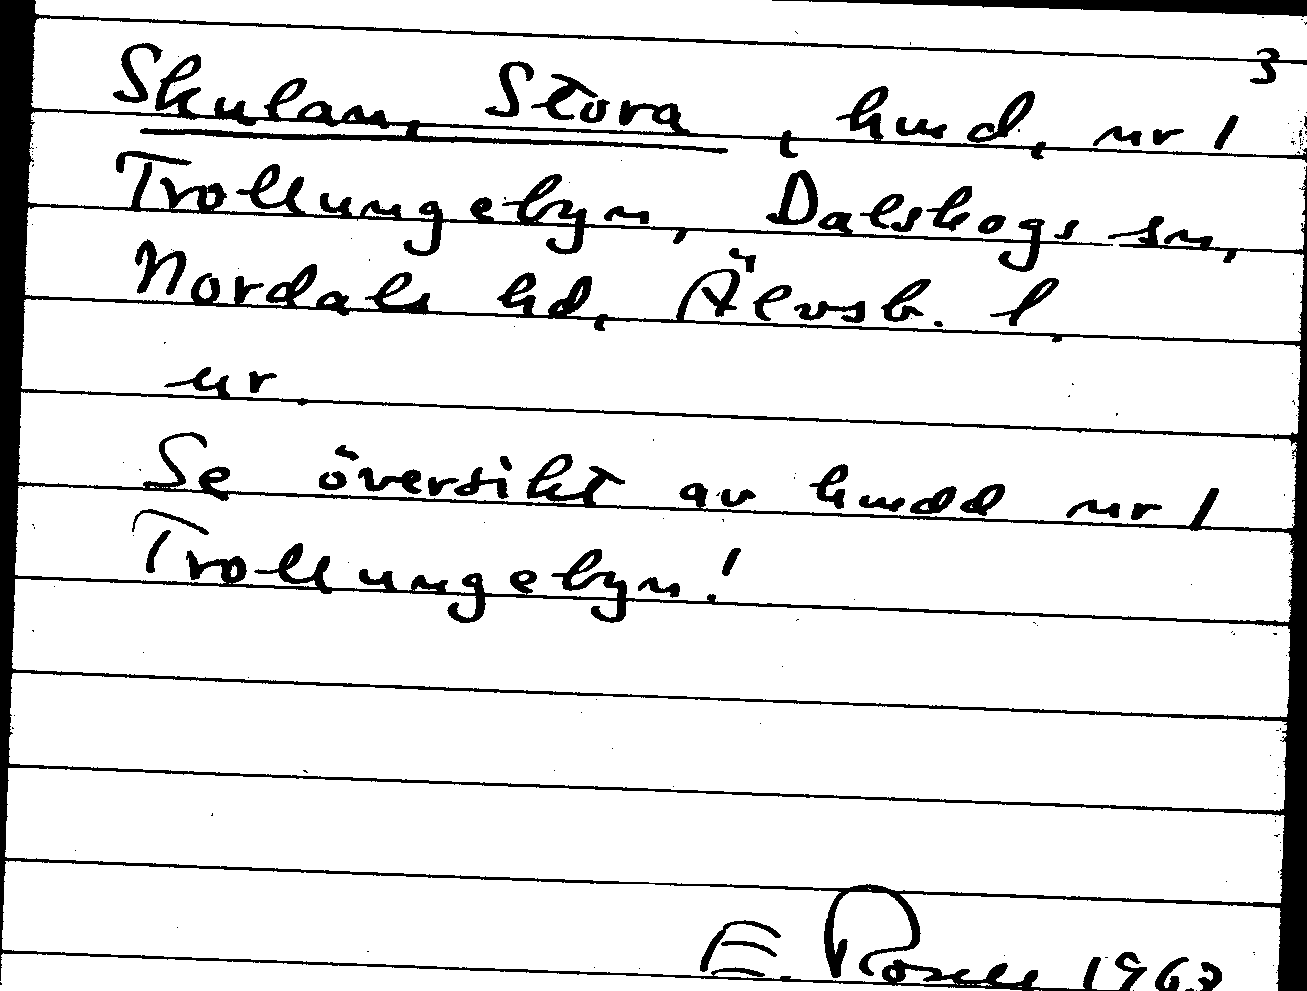 3
Skulan, Stora, hmd, nr 1
Trollungebyn, Dalskogs sn,
Nordals hd, Älvsb. l.
ur.
Se översikt av hmdd nr 1
Trollungebyn!
E. Rosell 1963